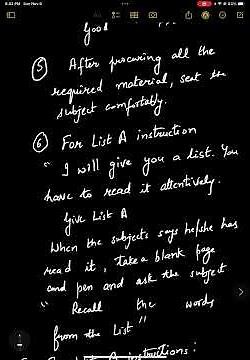 good
⑤ After procuring all the
required material, seat the
subject comfortably.
⑥ For List A instruction
"I will give you a list. You
have to read it attentively.
Give List A
When the subjects says he/she has
read it, take a blank page
and pen and ask the subject
"Recall the words
from the List"
instructions: